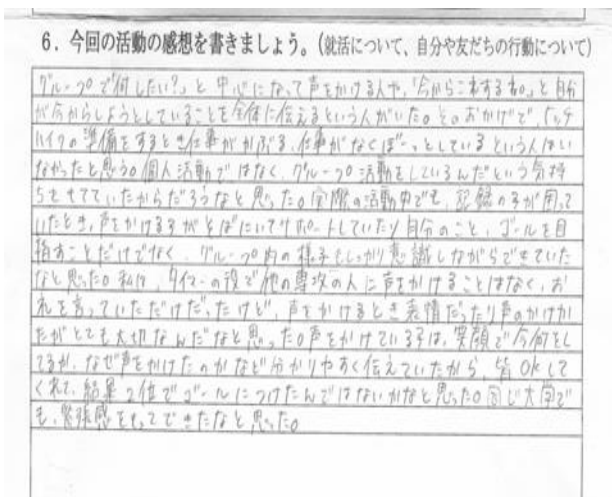 6. 今回の活動の感想を書きましょう。(就活について、自分や友だちの行動について)
グループで何したい?」と中心になって声をかける人や、「今からこれするね。」と自分
が今からしようとしていることを全体に伝えるという人がいた。そのおかげで、ヒッチ
ハイクの準備をするとき仕事がかぶる、仕事がなくぼーっとしているという人はい
なかったと思う。個人活動ではなく、グループ活動をしているんだという気持
ちをもてていたからだろうなと思った。実際の活動中でも、記録の子が困って
いたとき、声をかける子がとばにいてサポートしていたり自分のこと、ゴールを目
指すことだけでなく、グループ内の様子もしっかり意識しながらできていた
なと思った。私は、タイマーの役で他の専攻の人に声をかけることはなく、お
礼を言っていただけだったけど、声をかけるとき表情だったり声のかけか
たがとても大切なんだなと思った。声をかけている子は、笑顔で今何をし
てるか、なぜ声をかけたのかなど分かりやすく伝えていたから、皆OKして
くれて、結果2位でゴールにつけたんではないかなと思った。同じ大学で
も、緊張感をもってできたなと思った。